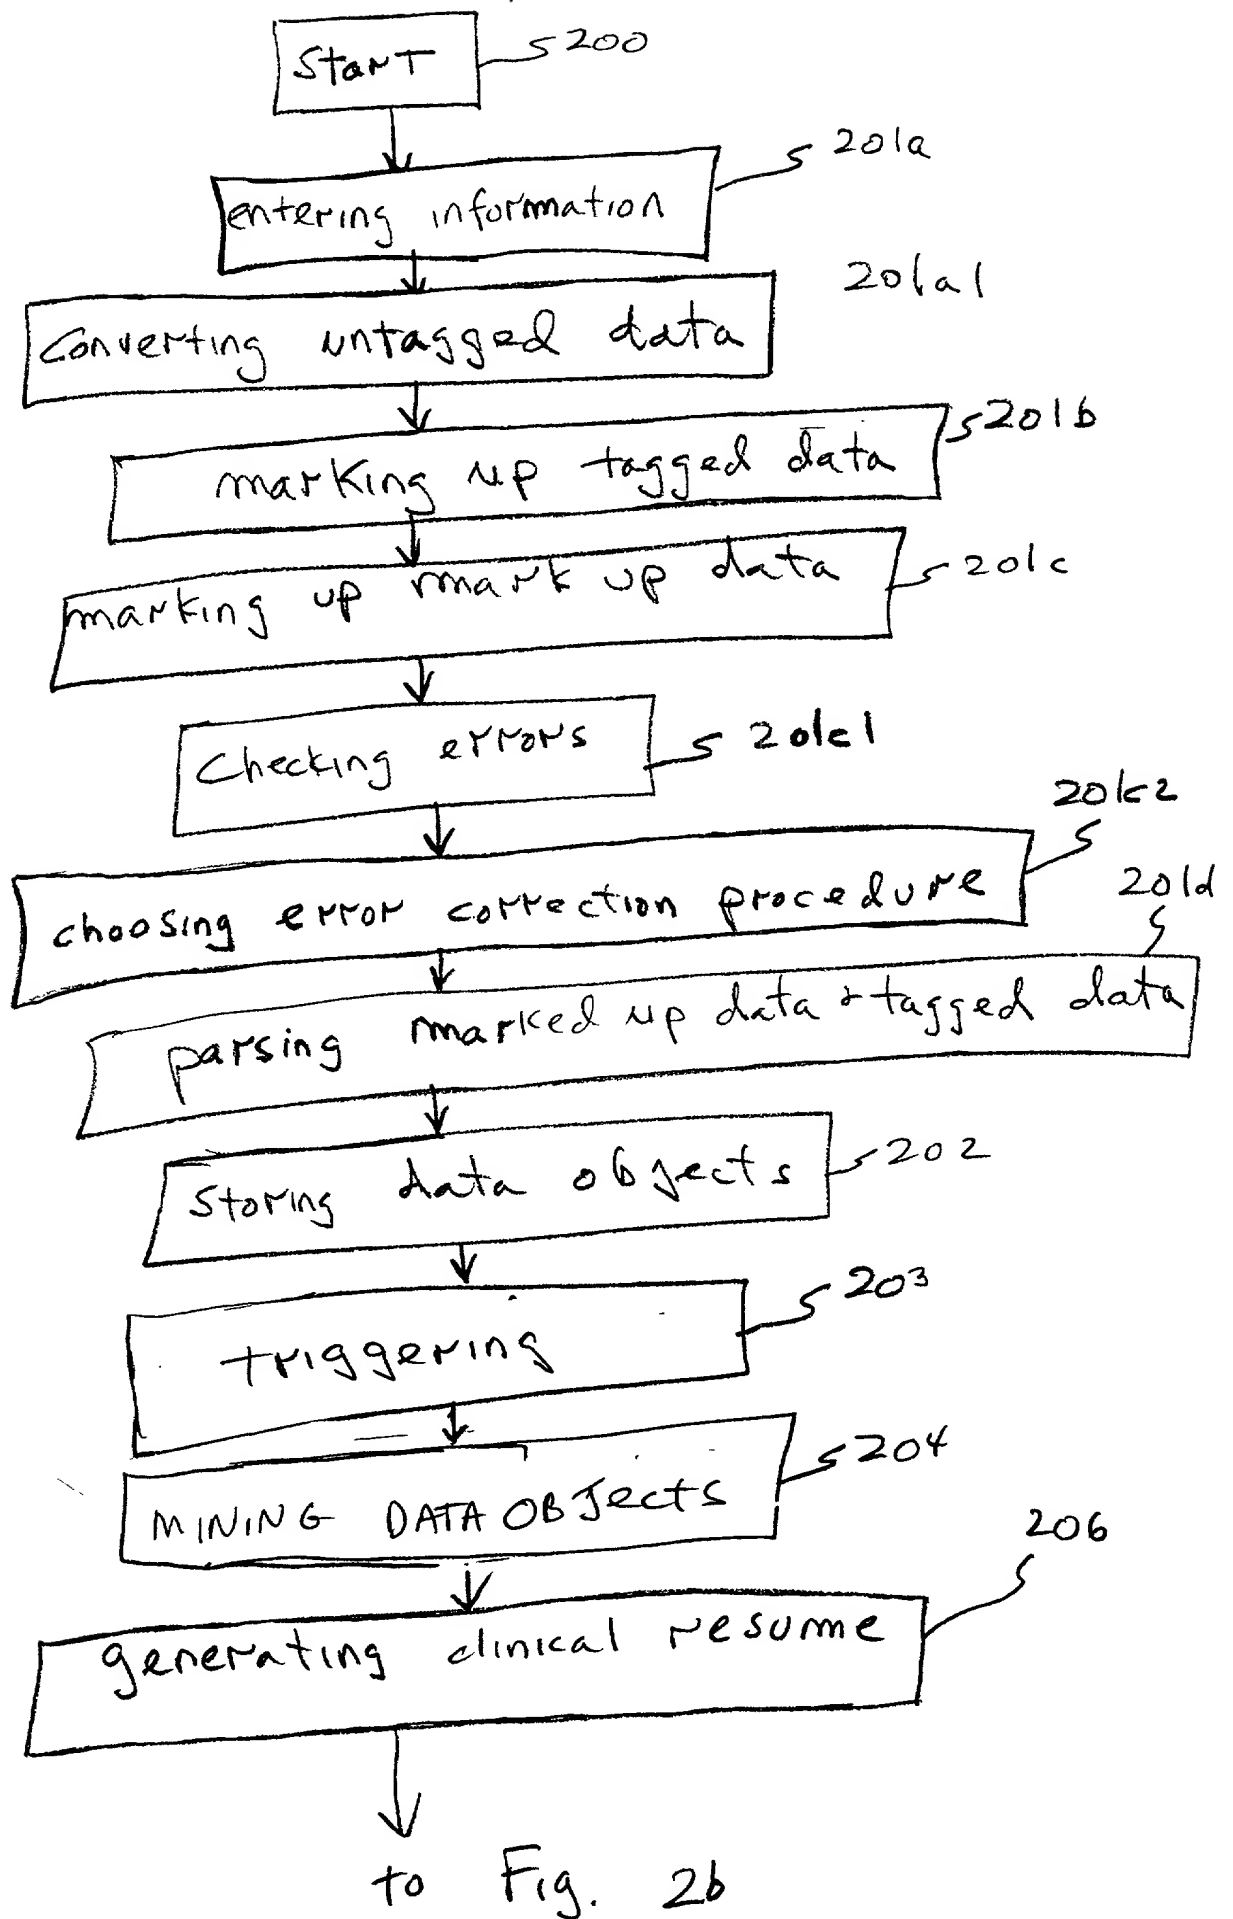 Start 200
entering information 201a
201a1
Converting untagged data
201b
marking up tagged data
marking up mark up data 201c
Checking errors 201c1
201c2
choosing error correction procedure
201d
parsing marked up data & tagged data
storing data objects 202
triggering 203
MINING DATA OBJects 204
206
generating clinical resume
to Fig. 2b